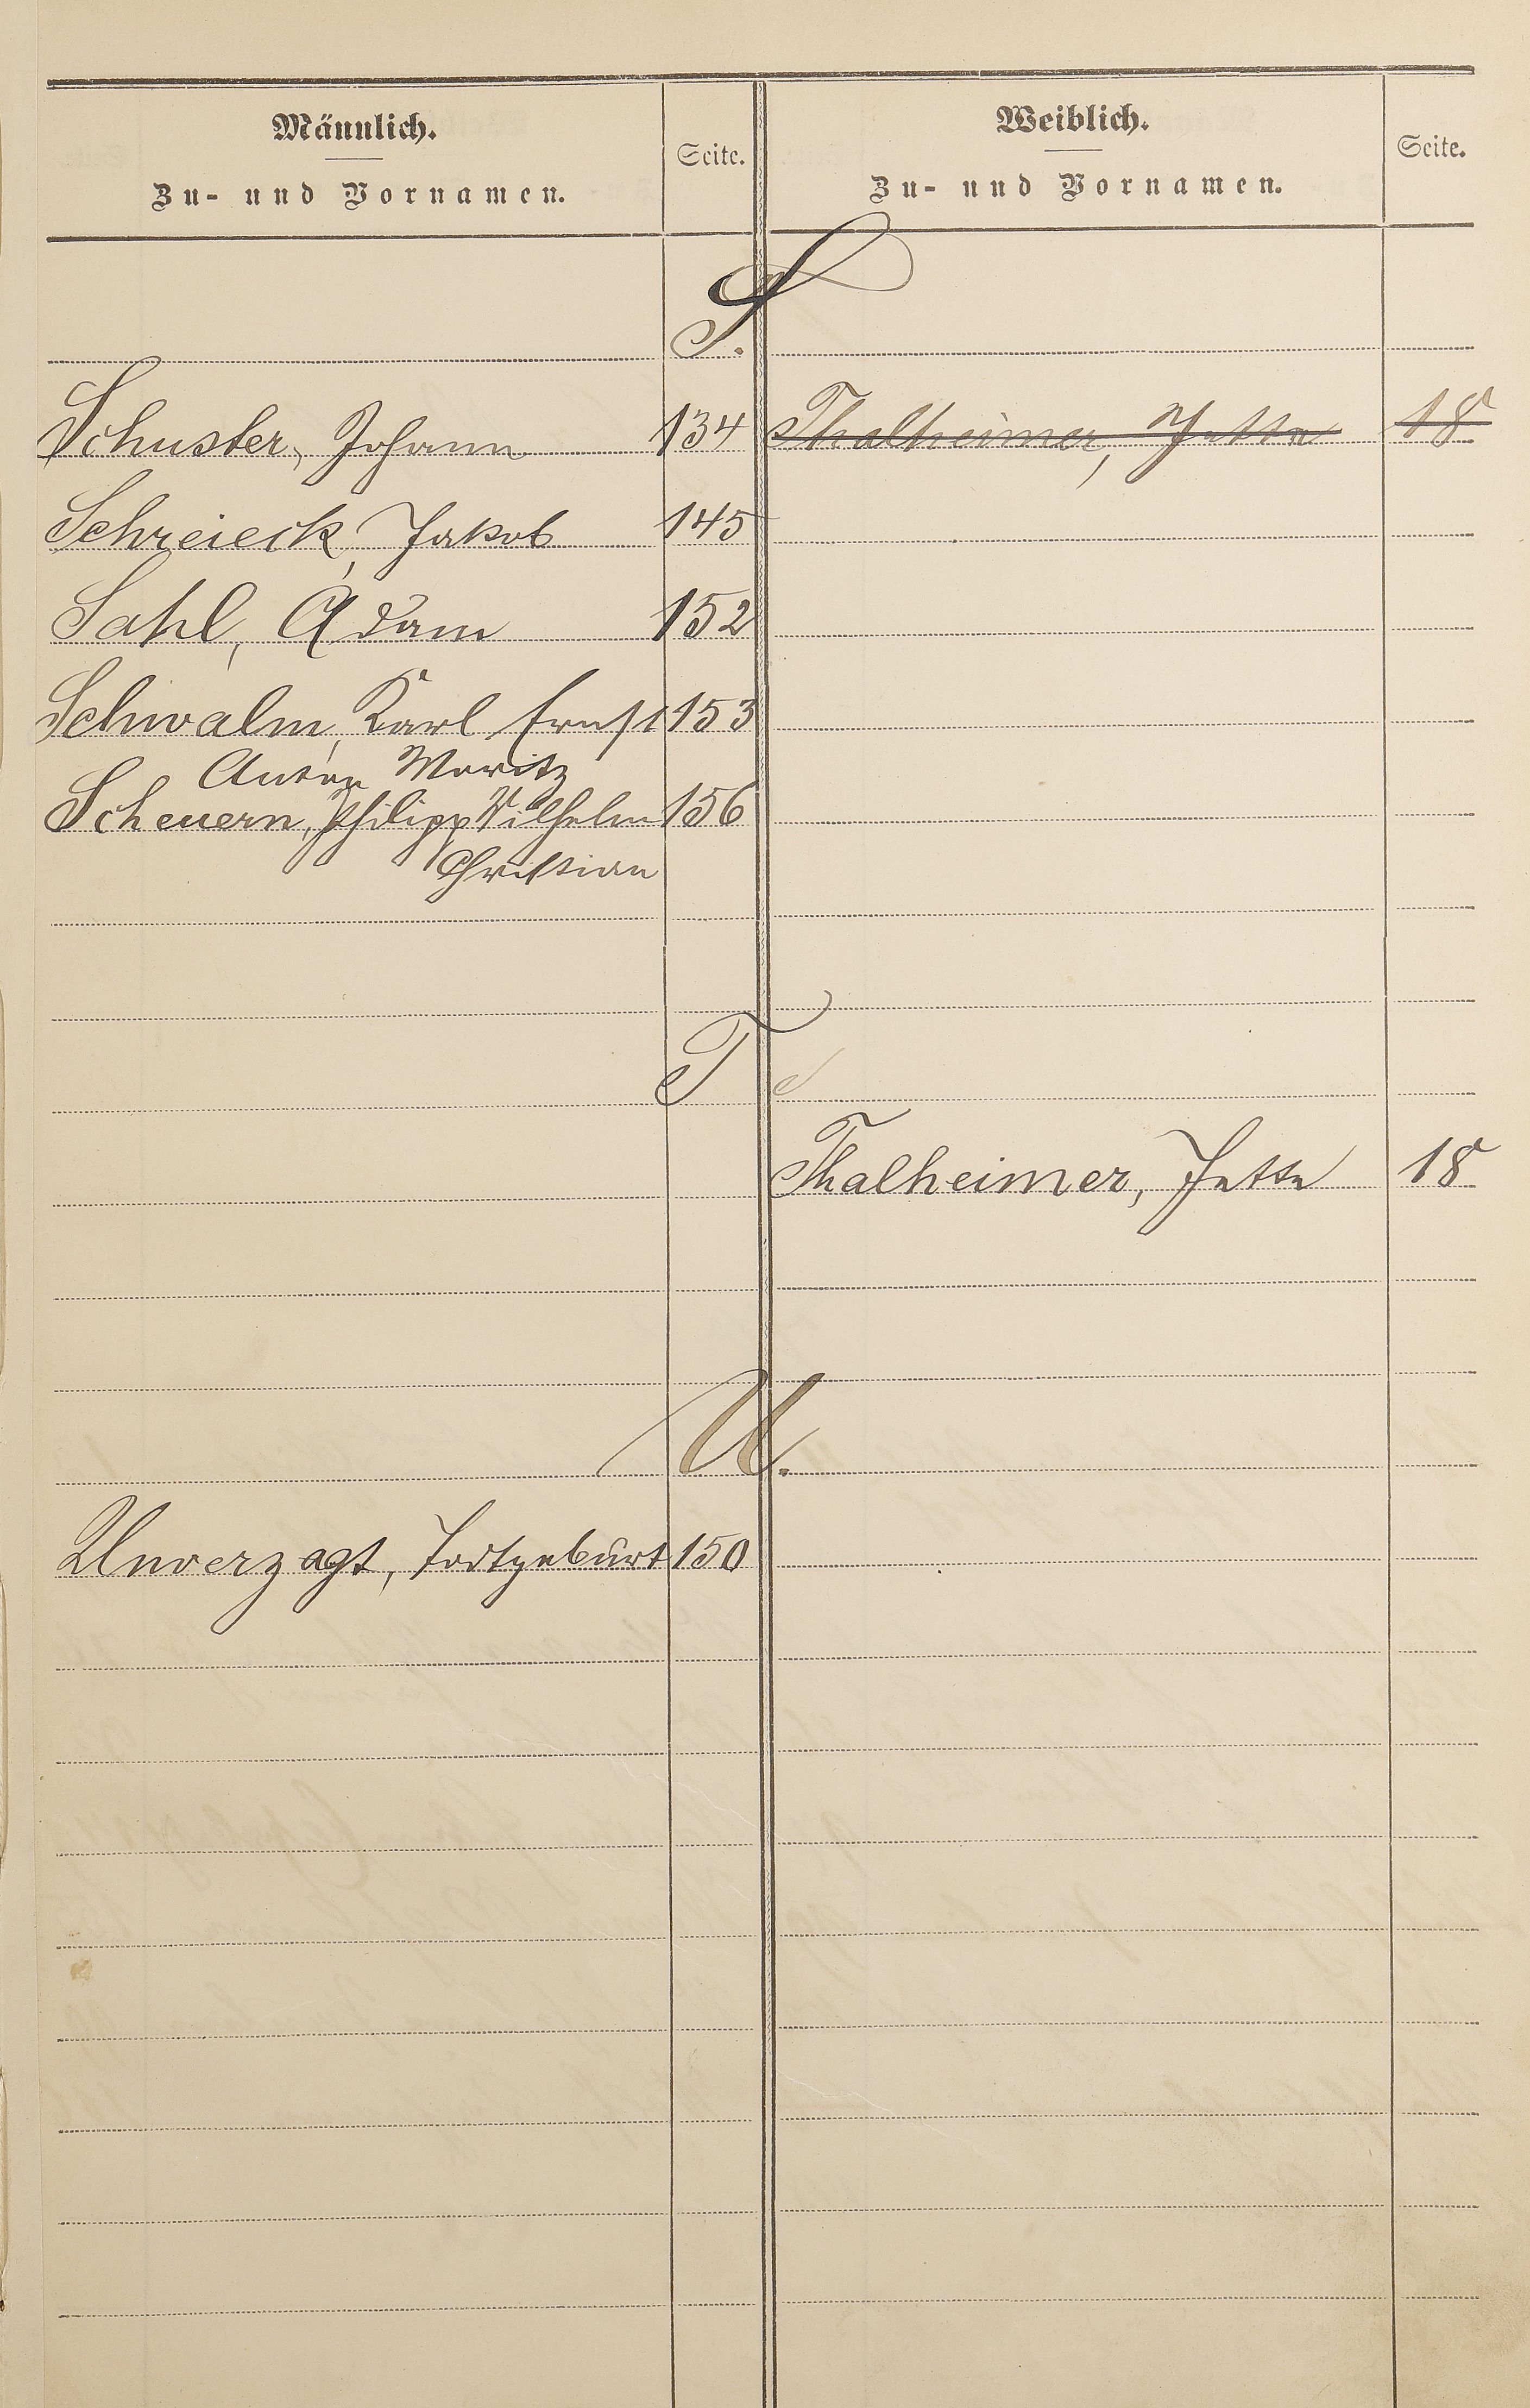 Männlich.
Zu- und Vornamen.
Seite.
Weiblich.
Zu- und Vornamen.
Seite.
S.
Schuster, Johann 134
Thalheimer, Jette 18
Schreieck, Jakob 145
Sahl, Adam 152
Schwalm, Karl Ernst 153
Anton Moritz
Scheuern, Philipp Wilhelm 156
Christian
T
Thalheimer, Jette 18
U.
Unverzagt, Todtgeburt 150